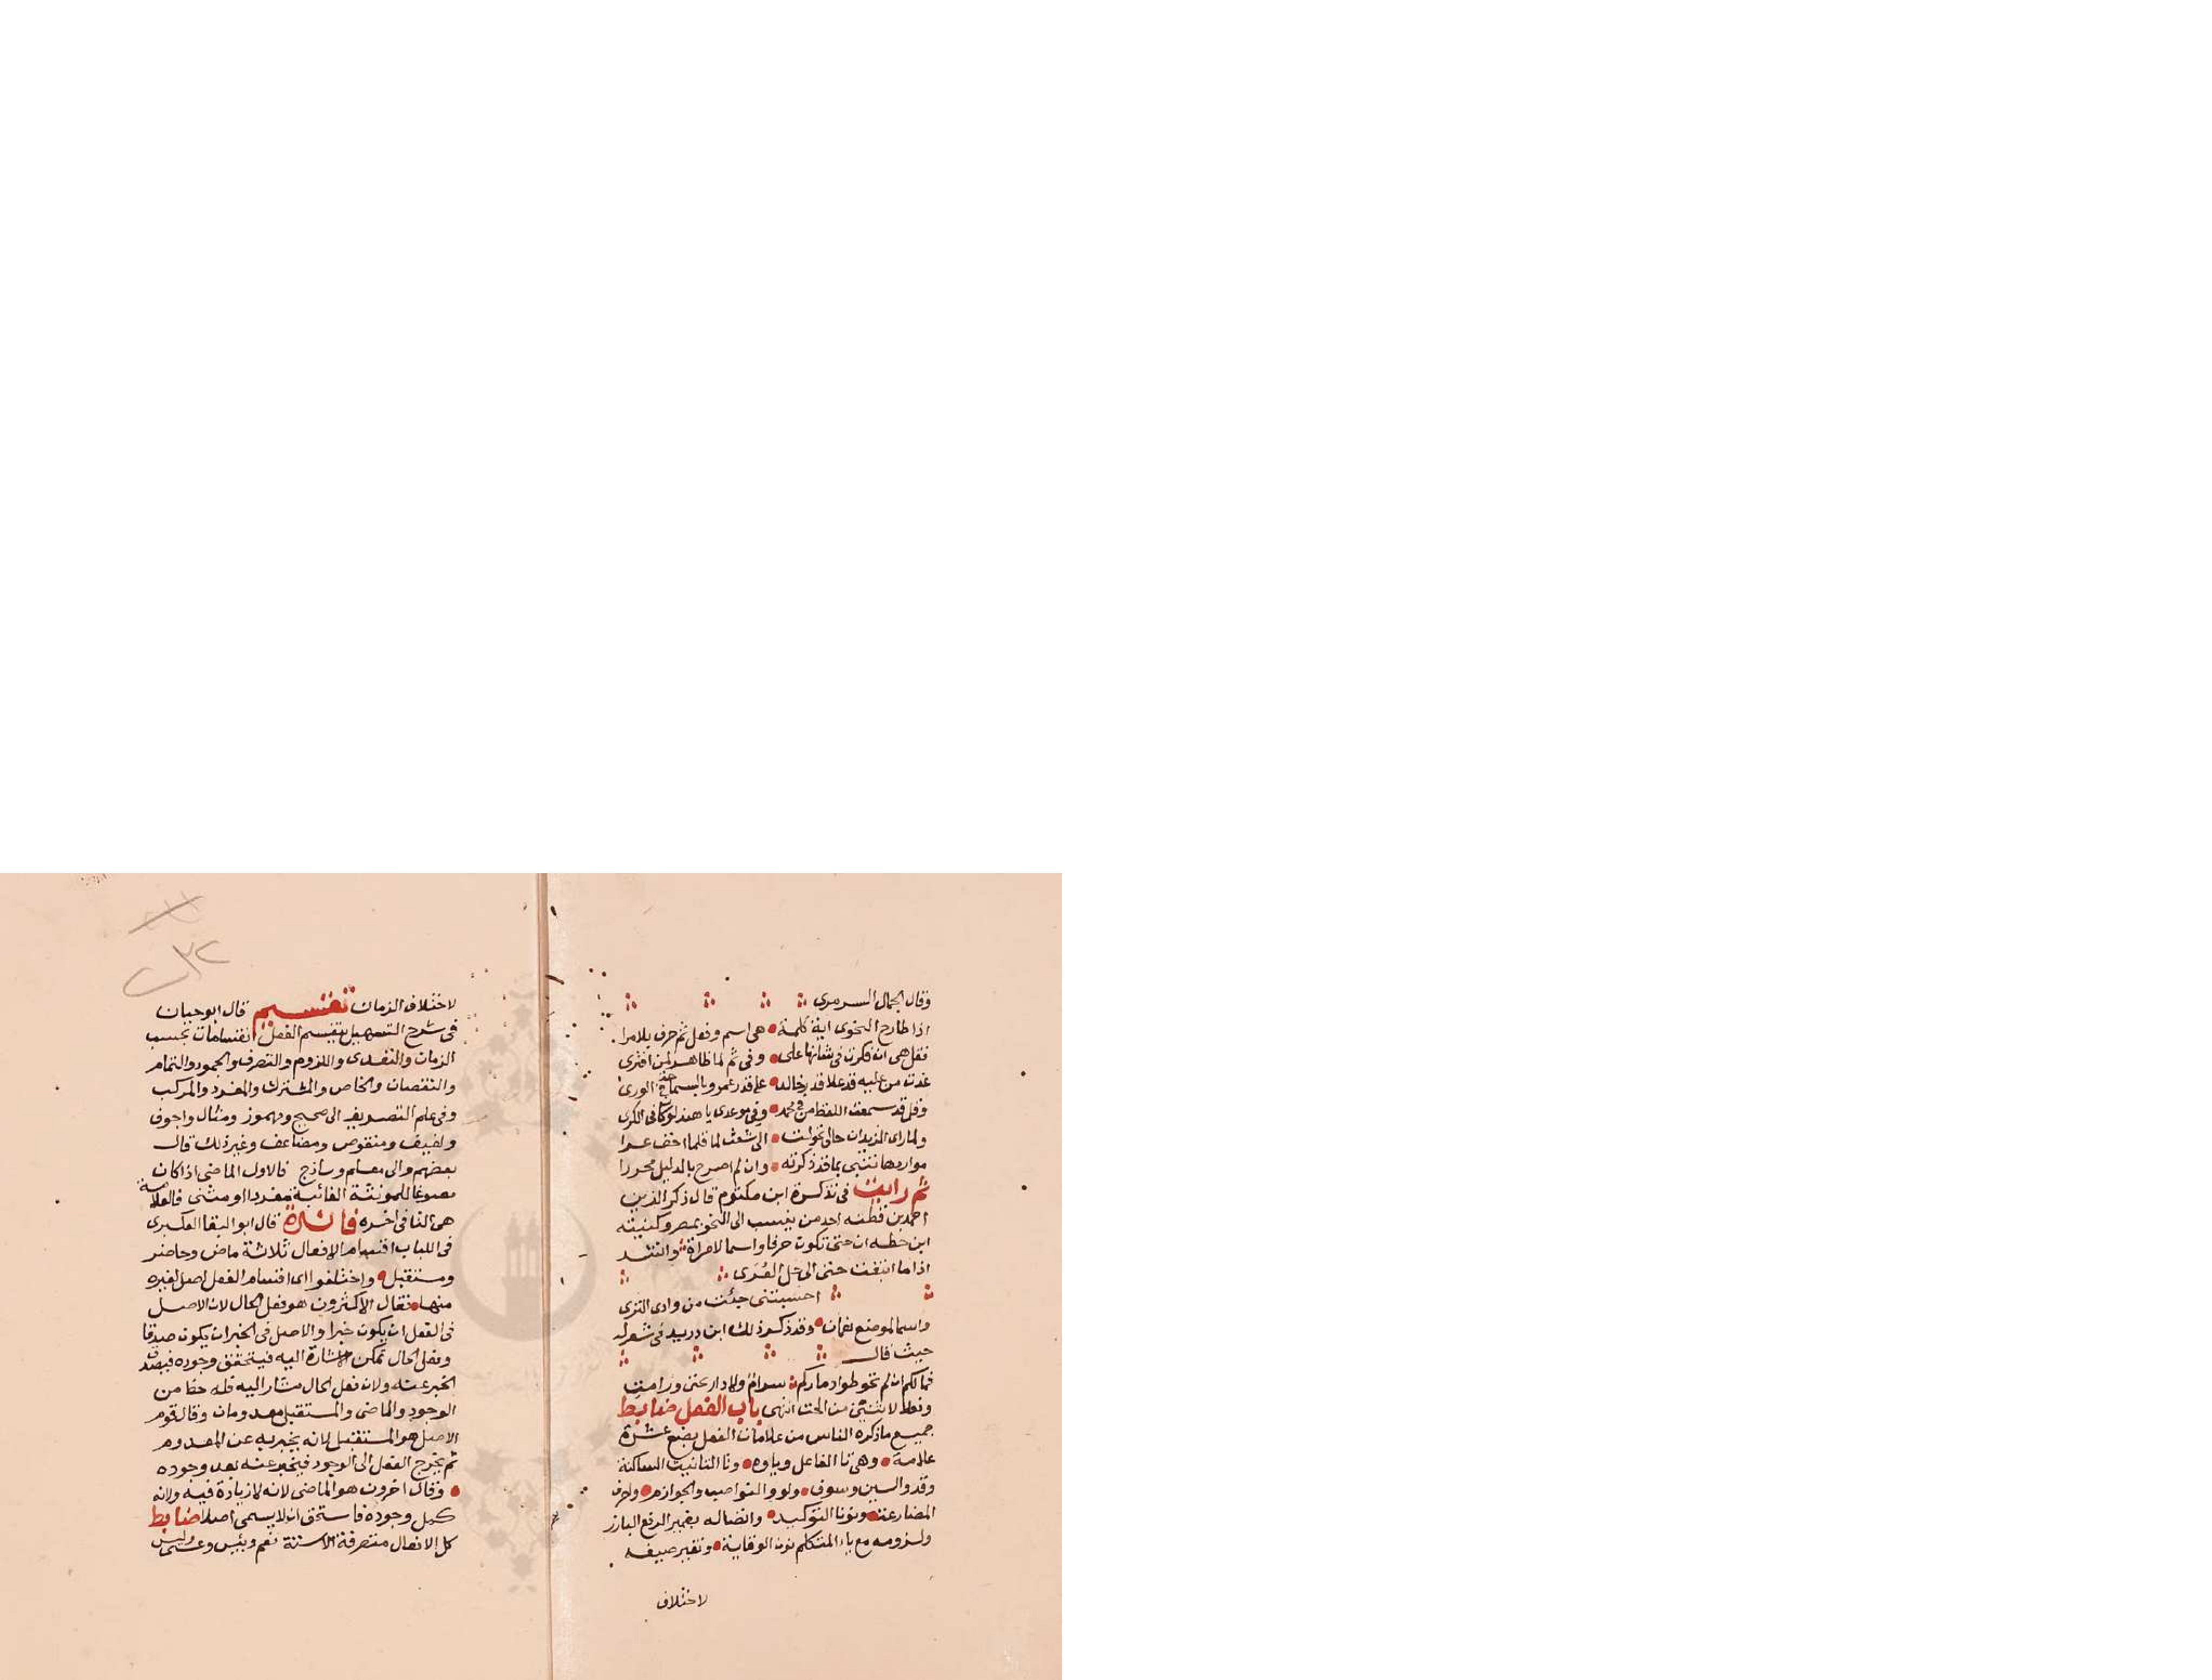 وقال الجمال السرمرى
اذا طارح النحوى اية كلمة هى اسم وفعل ثم حرف بلا مرا
فقل هى ان فكرت فى شانها على وفى ثم لما ظاهر لمن افترى
غدت من عليه قد علا قدر خالد على قدر عمرو بالسماحة الورى
وقل قد سمعت اللفظ من فى محمد وفى موعدى يا هند لو كان فى الكرى
ولما راى الزيدان حالى تحولت الى شعث لما فلما اخف عرا
مواردها تنبى بما قد ذكرته وان لم اصرح بالدليل محررا
ثم رايت فى تذكرة ابن مكتوم قال ذكر الذين
احمد بن قطنه احد من ينسب الى النحو بمصر وكنيته
ابن حطه ان حتى تكون حرفا واسما لامراة وانشد
اذا ما ابتغت حتى الى حل القرى
احسبتنى جئت من وادى القرى
واسما لموضع بعمان وقد ذكر ذلك ابن دريد فى شعر له
حيث قال
فما لكم ان لم تحوطوا دماركم سوام ولا دار بحتى ورامت
وفعلا لاثنين من الحت انتهى باب الفعل ضابط
جميع ما ذكره الناس من علامات الفعل بضع عشرة
علامة وهى تا الفاعل وياوه وتا التانيث الساكنة
وقد والسين وسوف ولو والنواصب والجوازم واحرف
المضارعة ونونا التوكيد واتصاله بضمير الرفع البارز
ولزومه مع ياء المتكلم نون الوقاية وتغير صيغه
لاختلاف
لاختلاف الزمان تقسيم قال ابو حيان
فى شرح التسهيل ينقسم الفعل انقسامات بحسب
الزمان والتعدى واللزوم والتصرف والجمود والتمام
والنقصان والخاص والمشترك والمفرد والمركب
وفى علم التصريف الى صحيح ومهموز ومثال واجوف
ولفيف ومنقوص ومضاعف وغير ذلك قال
بعضهم والى معلم وساذج فالاول الماضى اذا كان
مصوغا للمونثة الغائبة مفردا او مثنى فالعلامة
هى التا فى اخره فائدة قال ابو البقا العكبرى
فى اللباب اقسام الافعال ثلاثة ماض وحاضر
ومستقبل واختلفوا اى اقسام الفعل اصل لغيره
منها فقال الاكثرون هو فعل الحال لان الاصل
فى الفعل ان يكون خبرا والاصل فى الخبر ان يكون صدقا
وفعل الحال تمكن الاشارة اليه فيتحقق وجوده فيصدق
الخبر عنه ولان فعل الحال مشار اليه فله حظ من
الوجود والماضى والمستقبل معدومان وقال قوم
الاصل هو المستقبل لانه يخبر به عن المعدوم
ثم يخرج الفعل الى الوجود فيخبر عنه بعد وجوده
وقال اخرون هو الماضى لانه لا زيادة فيه ولانه
كمل وجوده فاستحق ان لا يسمى اصلا ضابط
كل الافعال متصرفة الا ستة نعم وبئس وعسى وليس